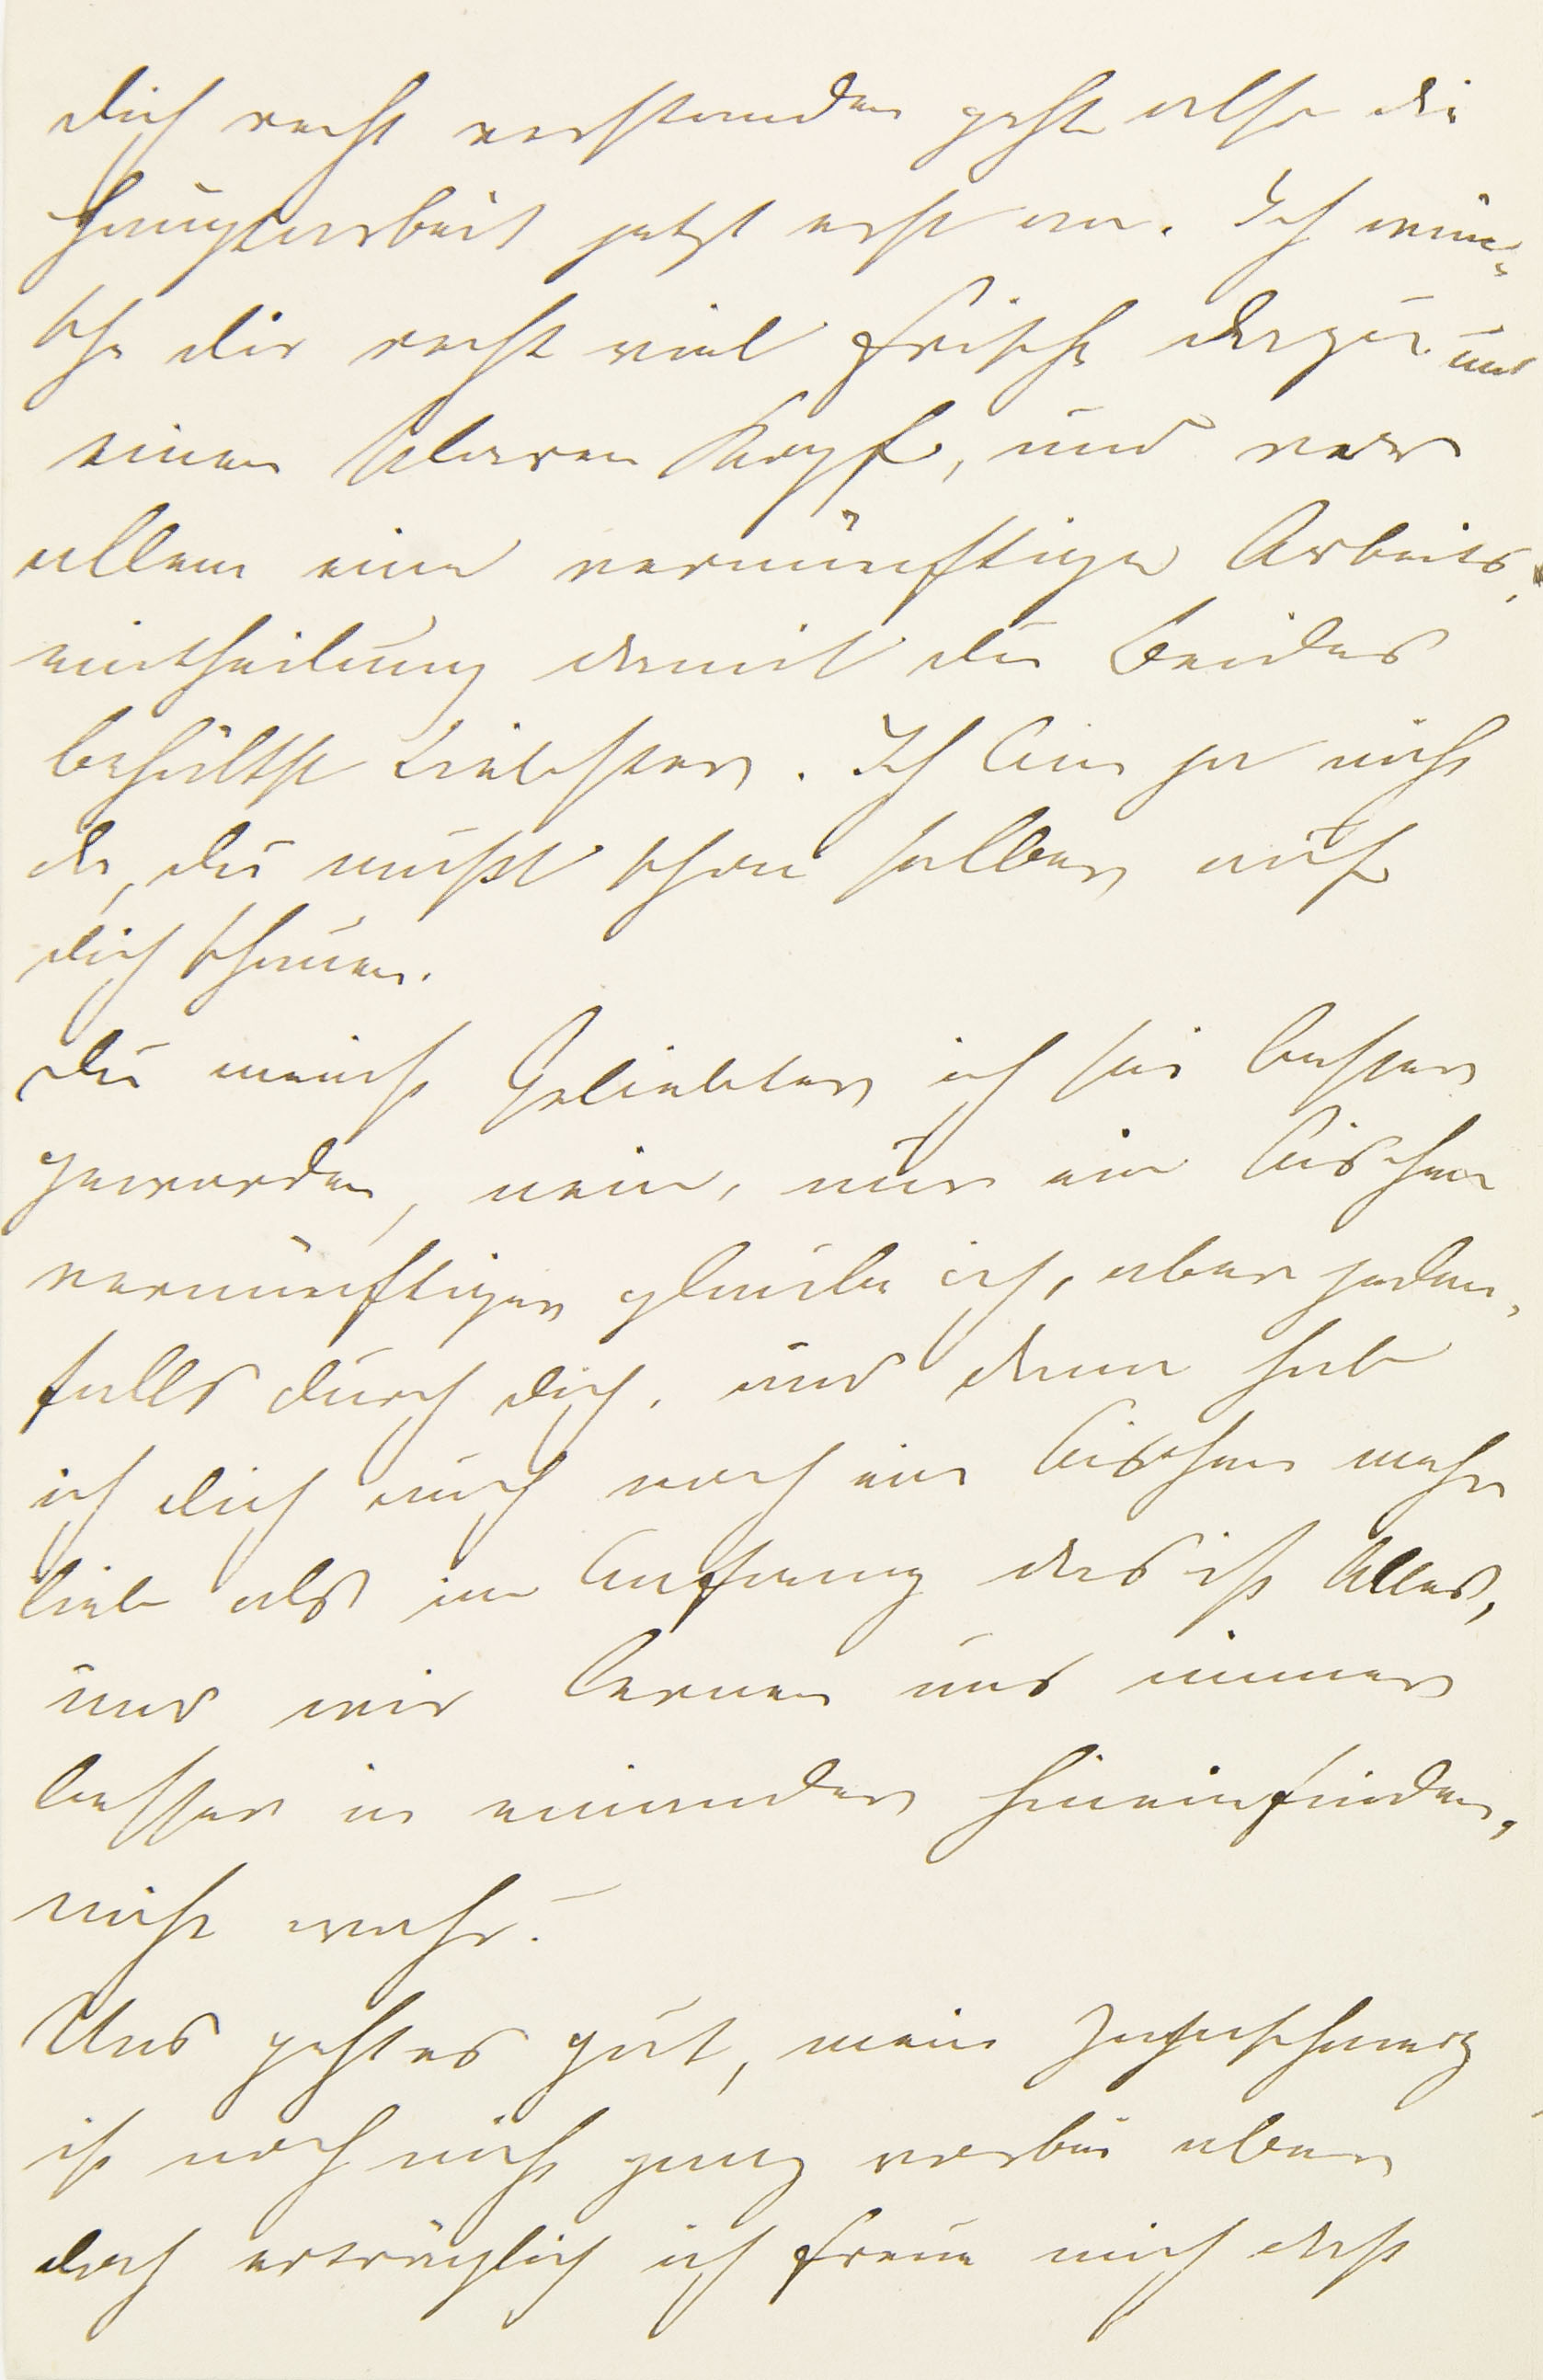 dich recht verstanden geht also die
Hauptarbeit jetzt erst an. Ich wün-
sche dir recht viel Frische dazu und
einen klaren Kopf, und vor
allem eine vernünftige Arbeits-
eintheilung damit du Beides
behältst Liebster. Ich bin ja nicht
da, du mußt schon selber auf
dich schauen.
Du meinst Geliebter ich sei besser
geworden, nein, nur ein bischen
vernünftiger glaube ich, aber jeden-
falls durch dich, und dann hab
ich dich auch noch ein bischen mehr
lieb als im Anfang das ist Alles,
und wir lernen uns immer
besser in einander hineinfinden,
nicht wahr?
Uns geht es gut, mein Zahnschmerz
ist noch nicht ganz vorbei aber
doch erträglich ich freue mich daß